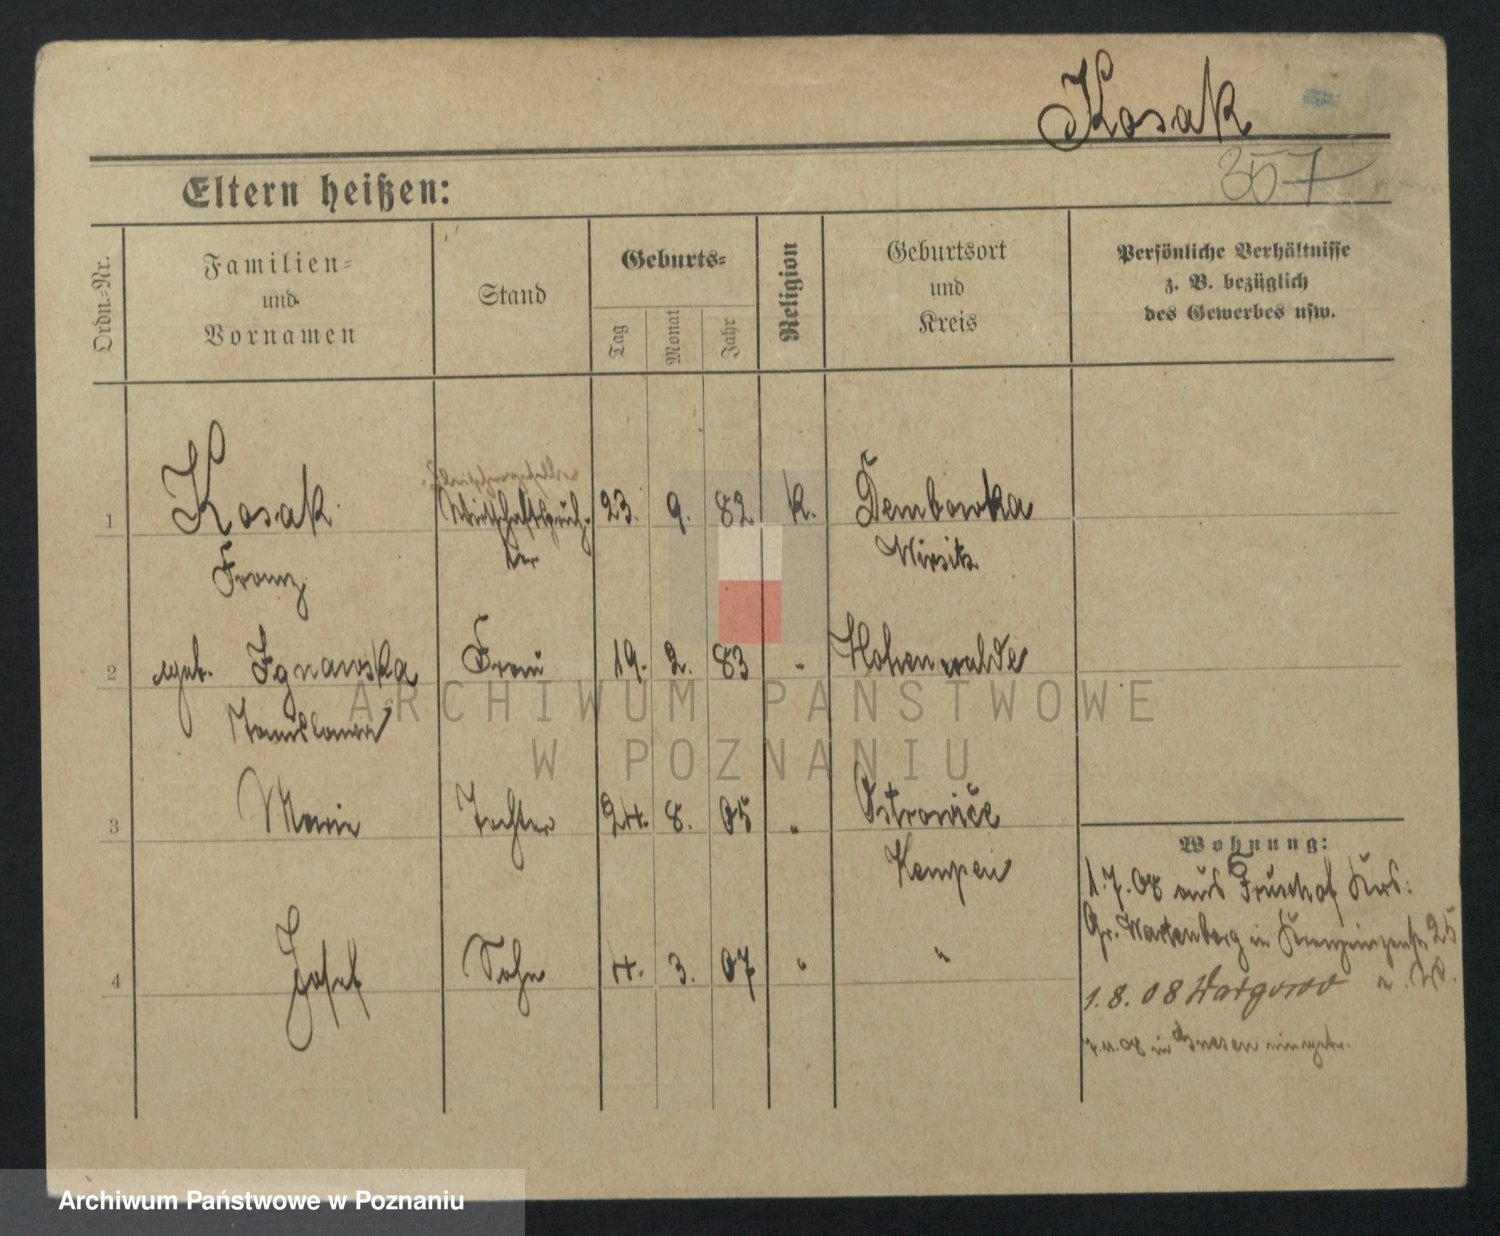 Kosak
357
Eltern heißen:
Ordn.-Nr.
Familien-
und
Vornamen
Stand
Geburts-
Tag
Monat
Jahr
Religion
Geburtsort
und
Kreis
Persönliche Verhältnisse
z. B. bezüglich
des Gewerbes usw.
1 Kosak 23. 9. 82 k. Dembowka
Franz Wirsitz
2 geb. Ignawska Frau 19. 2. 83 " Hohenwalde
Stanislawa
3 Marie Tochter 24. 8. 05 " Ostrowice
Kempen
4 Josef Sohn 4. 3. 07 " "
Wohnung:
1.7.08 aus Krs:
Gr. Wartenberg in 25
1.8.08
in Gnesen
ARCHIWUM PAŃSTWOWE
W POZNANIU
Archiwum Państwowe w Poznaniu